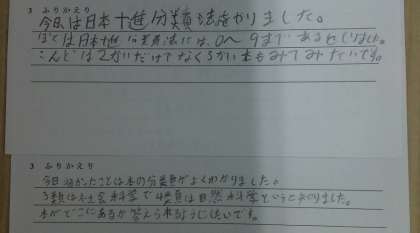 3 ふりかえり
今日は日本十進分類法をかりました。
ぼくは日本十進分類法には、0〜9まであるとしりました。
こんどは2かいだけでなく3かい本もみてみたいです。
3 ふりかえり
今日分かったことは本の分類がよくわかりました。
3類は社会科学で4類は自然科学ということがわかりました。
本がどこにあるか答えられるようにしたいです。